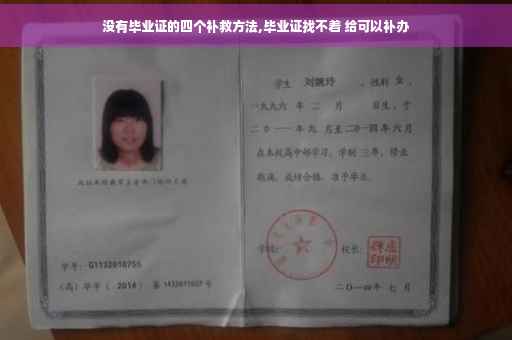 没有毕业证的四个补救方法,毕业证找不着 给可以补办
学生 刘婉玲 ,性别 女 ,
一九九六 年 二 月 日生,于
二〇一一年九 月至二〇一四年六月
在本校高中部学习,学制 三年,修业
期满,成绩合格,准予毕业。
学校: 校长:
学号: G1132010755
(高)毕字( 2014 )第 1432011027 号
二〇一四年 七 月